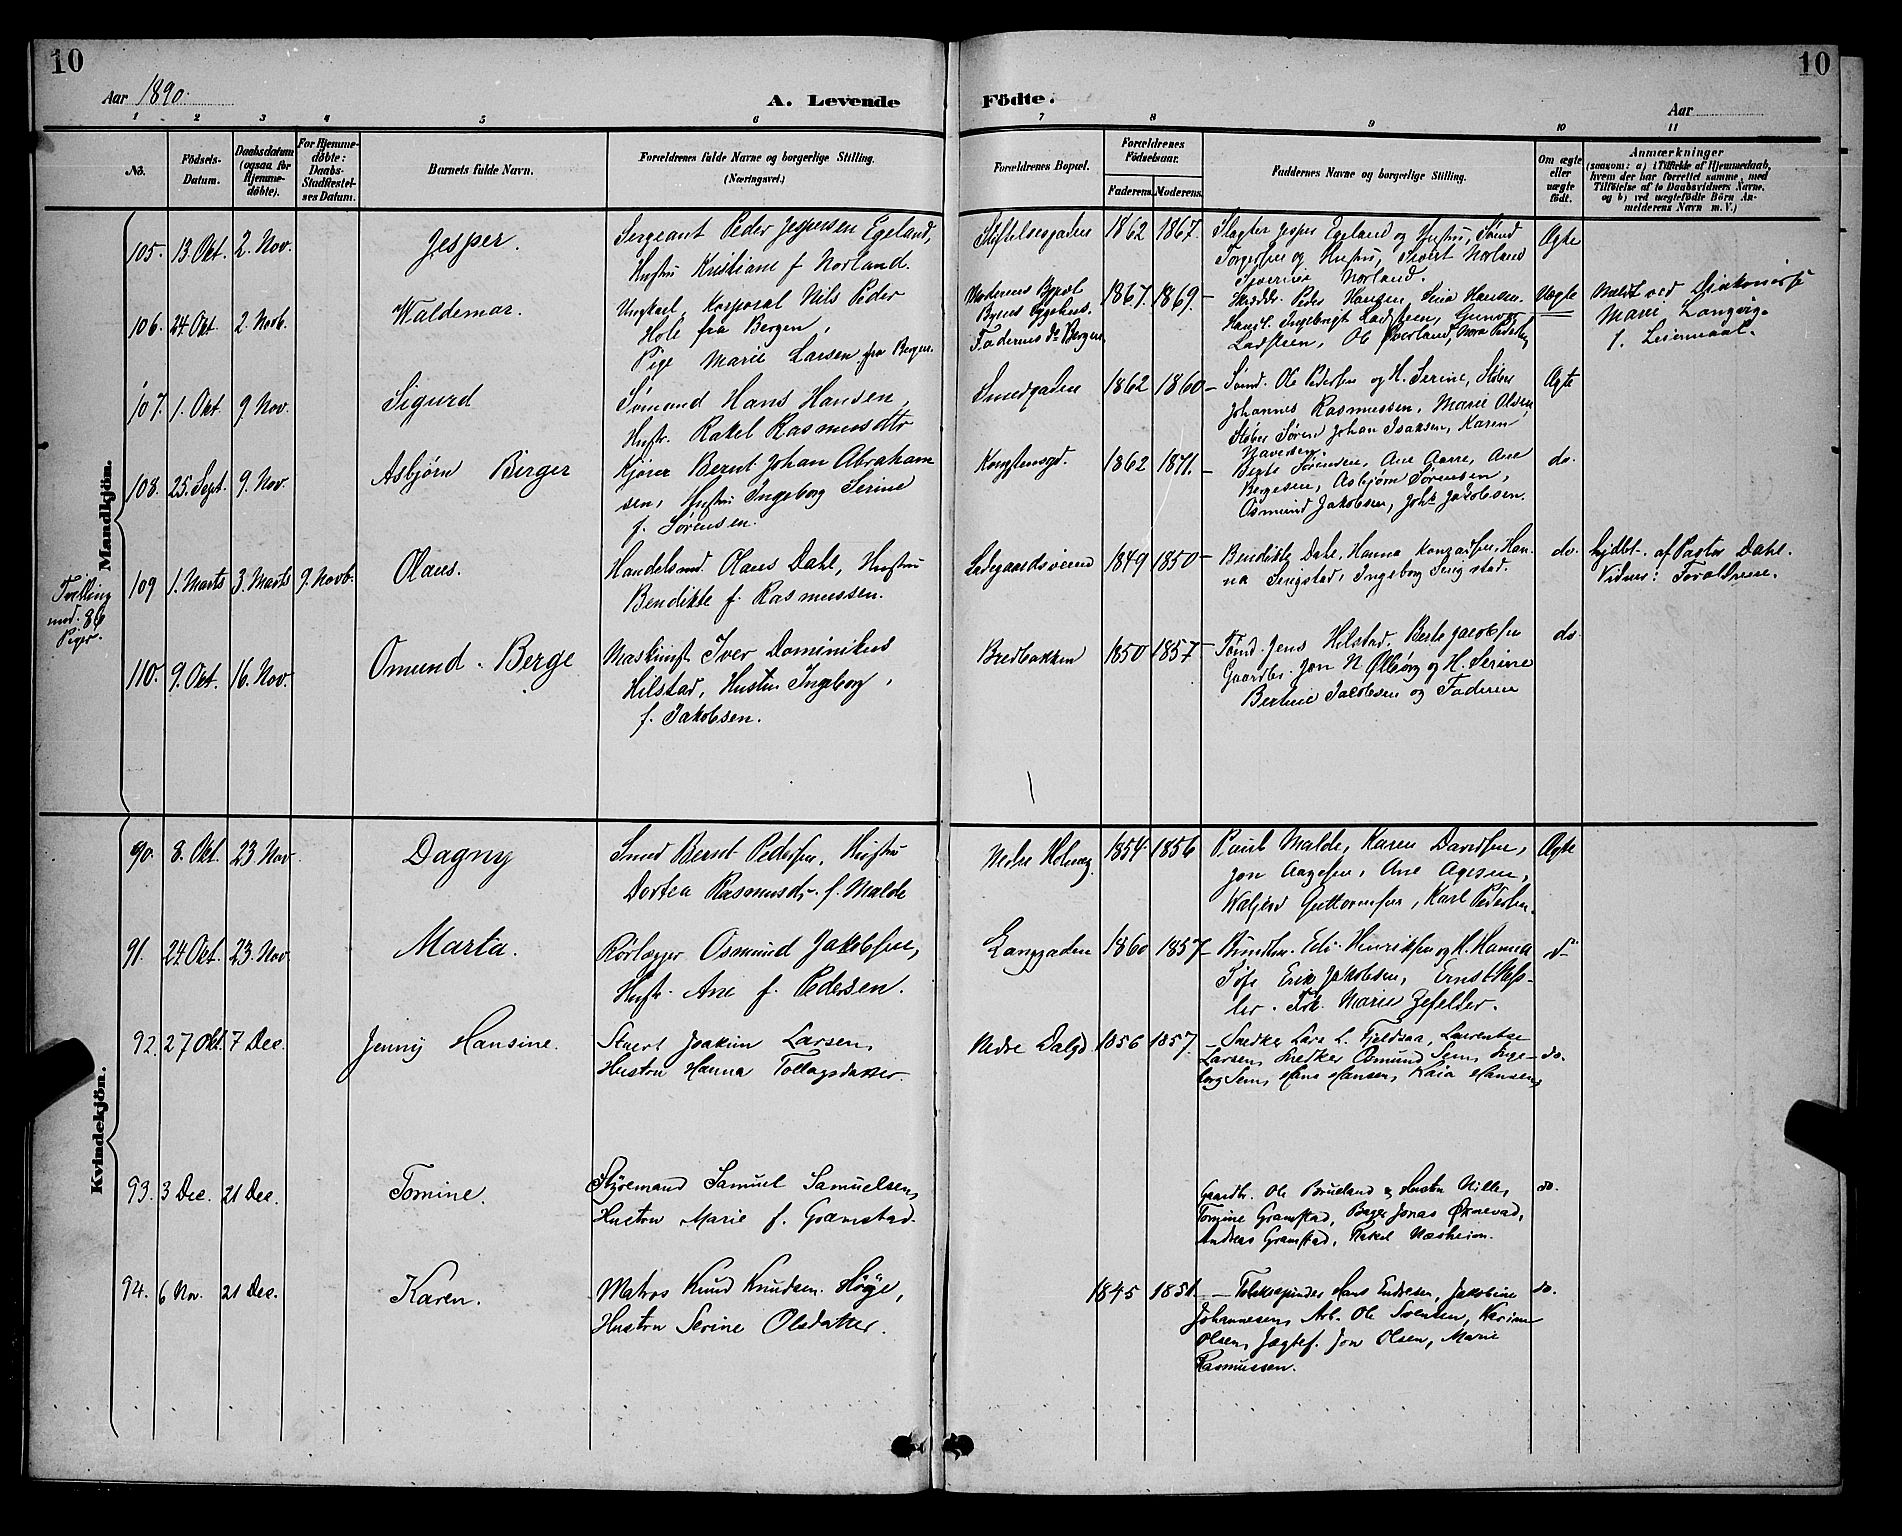 10
10
Aar 1890.
A. Levende
Födte.
Aar
1 2 3 4 5 6 7 8 9 10 11
No.
Födsels-
Datum.
Daabsdatum
(ogsaa for
Hjemme-
döbte).
For Hjemme-
döbte:
Daabs-
Stadfæstel-
ses Datum.
Barnets fulde Navn.
Forældrenes fulde Navne og borgerlige Stilling.
(Næringsvei.)
Forældrenes Bopæl.
Forældrenes
Födselsaar.
Faderens. Moderens.
Faddernes Navne og borgerlige Stilling.
Om ægte
eller
uægte
födt.
Anmærkninger
(saasom: a) i Tilfælde af Hjemmedaab,
hvem der har forrettet samme, med
Tilföielse af to Daabsvidners Navne,
og b) ved uægtefödte Börn An-
melderens Navn m. V.)
Mandkjön.
105. 13 Okt. 2. Nov.
Jesper.
Sergeant Peder Jespersen Egeland,
Hustru Kristiane f Norland.
Stiftelsesgaden
1862 1867.
Slagter Jesper Egeland og Hustru, Sömd
Torgersen og Hustru, Sivert Norland
Norland.
Ægte
106. 24 Okt 2. Novb.
Waldemar.
Ungkarl, Korporal Nils Peder
Hole fra Bergen,
Pige Marie Larsen fra Bergen.
Moderens Bopæl
Byens Sygehus.
Faderens do Bergen
1867. 1869.
Peder Hansen, Hansen.
Handl. Ingeborgt Ladsteen, Gunvor
Ladsteen, Ob Överland,
Uægte
Meldt ved
Marie Langvig.
f. Leiermaal.
107. 1. Okt 9 Nov.
Sigurd
Sömand Hans Hansen,
Hustr. Rakel Rasmusdtr
Smedgaden
1862 1860
Sömd. Ole Pedersen og H. Serine, Støber
Johannes Rasmussen, Marie Olsen,
Støber Sören Johan Isaksen, Karen
Ægte
108. 25. Sept. 9. Nov.
Asbjörn Birger
Kjører Bernt Johan Abraham
sen, Hustru Ingeborg Serine
f. Sørensen.
Kongstensgd.
1862 1871.
Berte Sörensen, Ane Aarre, Ane
Bergesen, Asbjörn Sörensen,
Osmund Jakobsen, Joh. Jakobsen.
do.
Tvilling
med. 86
Piger.
109 1. Marts 3 Marts 9. Novb.
Olaus.
Handelsmd. Olaus Dahl, Hustru
Bendikte f. Rasmussen.
Ladegaardsveien
1849 1850
Bendikte Dahl, Hanna Han-
na Sengstad, Ingeborg Sengstad.
do.
Hjdbt. af Pastor Dahl.
Vidner: Forældrene.
110. 9. Okt. 16. Nov.
Omund. Berge
Maskinist Iver Dominikus
Hilstad, Hustru Ingeborg,
f. Jakobsen.
Bredbakken
1850 1857
Jens Hilstad. Berte Jacobsen
Gaardbr. Jon N Ølberg og H. Serine
Bertine Jacobsen og Faderen
do
Kvindekjön.
90. 8. Okt. 23 Nov
Dagny
Smed Bernt Pedersen, Hustru
Dortea Rasmusd. f. Malde
Nedre Holmeg.
1854 1856
Paul Malde, Karen Davidsen,
Jon Aagesen, Ane Agesen,
Guttormsen, Karl Pedersen.
Ægte
91. 24 Okt. 23. Nov
Marta.
Rörlægger Osmund Jakobsen,
Hustr. Ane f. Pedersen.
Langgaden
1860 1857
Edv. Henriksen og H. Hanna
Tofe Erik Jakobsen, Ernst Kess-
ler. Frk. Marie Zefelder.
do
92. 27 Okt. 7 Dec.
Jenny Hansine.
Stuert Joakim Larsen,
Hustru Hanna Tollagsdatter.
Nedre Dalgd
1856 1857.
Snedker Lars L. Fjeldsaa, Laurentse
Larsen, Snedker Osmund Sem, Inge-
borg Sem, Hans Hansen, Kaia Hansen,
do.
93. 3 Dec. 21 Dec.
Tomine.
Styremand Samuel Samuelsen,
Hustru Marie f. Gramstad.
Gaardbr. Ole Brueland og Hustru Nille,
Tomine Gramstad, Bager Jonas Øknevad,
Andreas Gramstad, Rakel Næsheim.
do.
94. 6 Nov. 21 Dec.
Karen.
Matros Knud Knudsen Høye,
Hustru Serine Olsdatter.
1845 1851.
Tobakspinder Hans Endresen, Jakobine
Johannesen, Arb. Ole Svensen, Karine
Olsen, Jægtef. Jon Olsen, Marie
Rasmussen.
do.